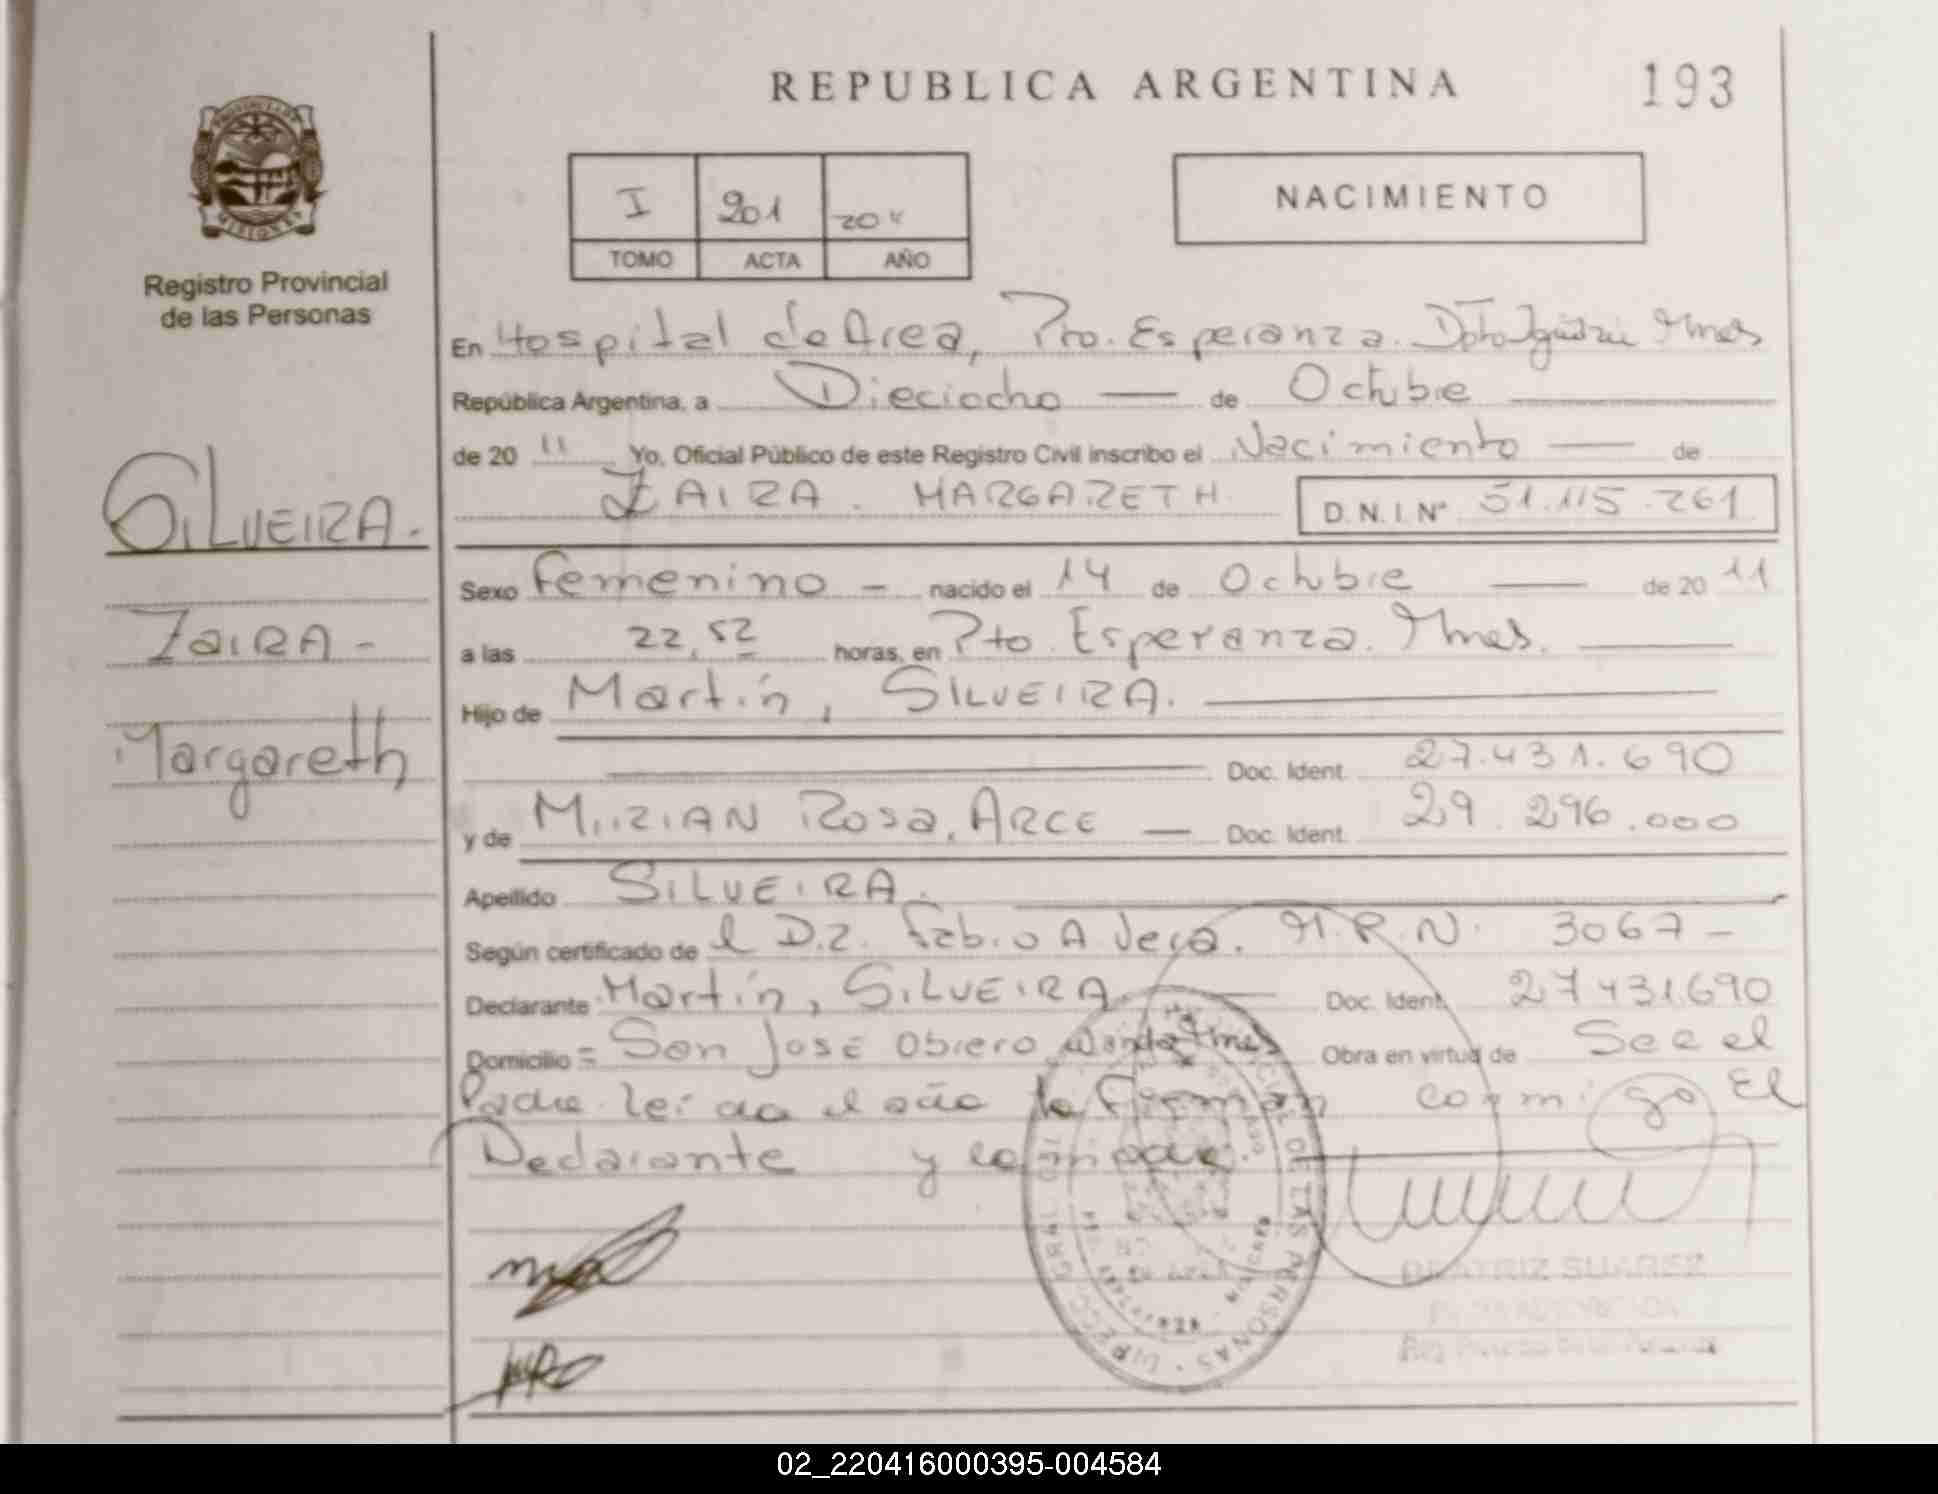 REPUBLICA ARGENTINA
193
PROVINCIA DE
MISIONES
Registro Provincial
de las Personas
I 201
TOMO ACTA AÑO
NACIMIENTO
En Hospital de Area, Pto. Esperanza. Dpto Iguazú Mnes
República Argentina, a Dieciocho — de Octubre
de 20 11 Yo, Oficial Público de este Registro Civil inscribo el Nacimiento — de
ZAIRA. MARGARETH. D.N.I. Nº 51.115.261
SILVEIRA.
ZAIRA -
Margareth
Sexo Femenino - nacido el 14 de Octubre — de 20 11
a las 22,52 horas, en Pto. Esperanza. Mnes.
Hijo de Martín, SILVEIRA.
Doc. Ident. 27.431.690
y de MIRIAN Rosa, ARCE — Doc. Ident. 29.296.000
Apellido SILVEIRA.
Según certificado de el Dr. Fabio A Vera. M.P.N. 3067 -
Declarante Martín, SILVEIRA — Doc. Ident. 27431690
Domicilio = San José Obrero Wanda Mnes Obra en virtud de Ser el
Padre. leída el acta la firman conmigo El
Declarante y la madre.
DIRECC. GRAL. DEL REG. PROVINCIAL DE LAS PERSONAS
BEATRIZ SUAREZ
02_220416000395-004584